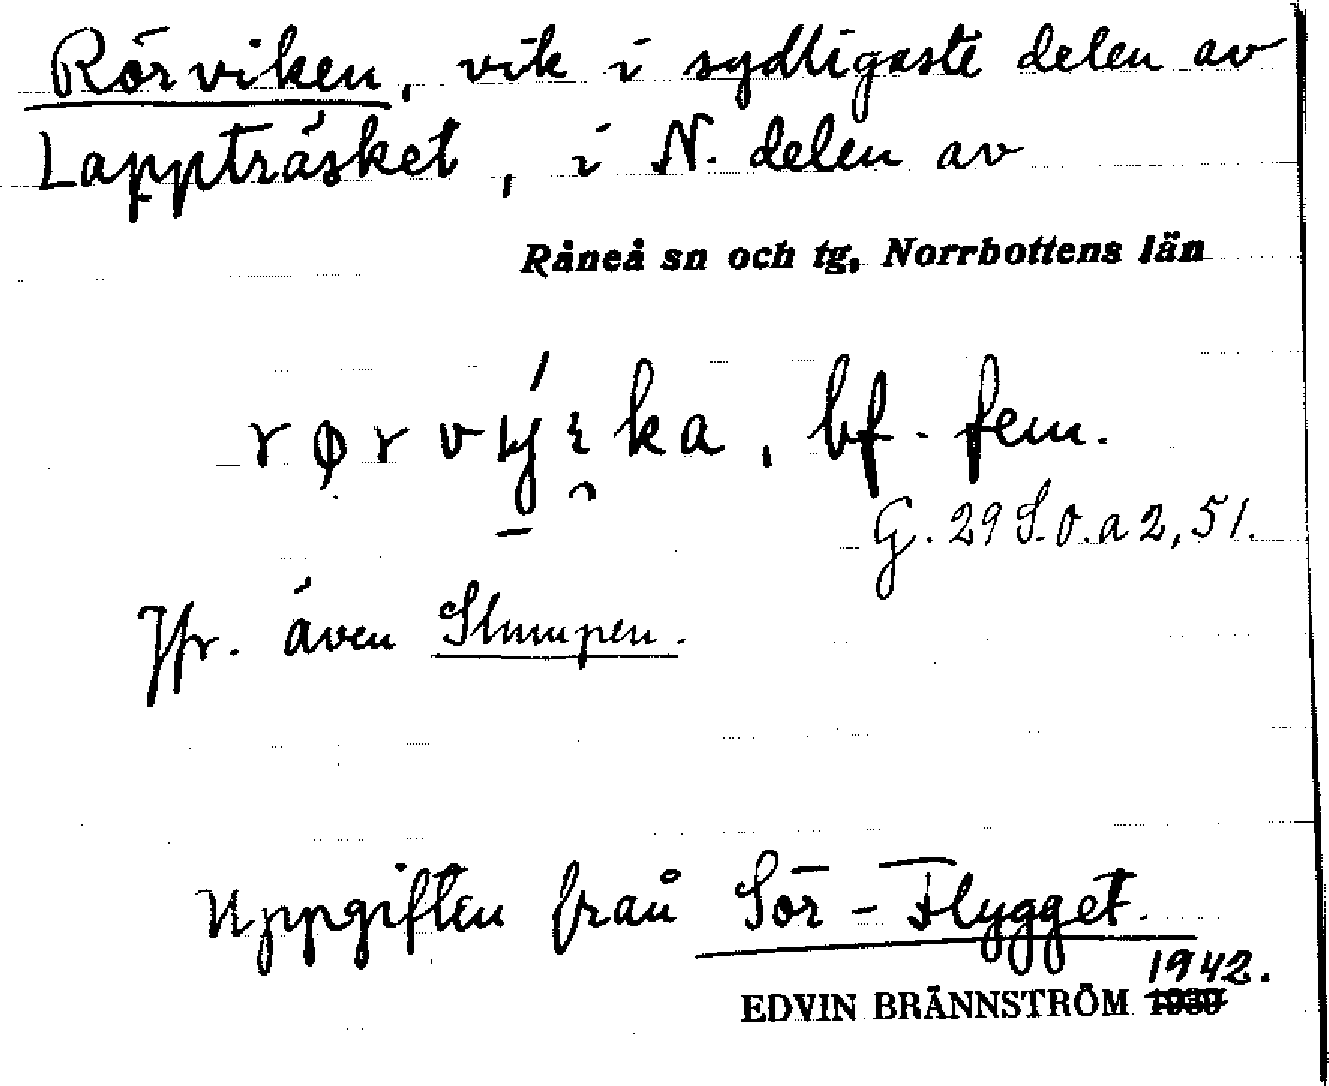 Rörviken, vik i sydligaste delen av
Lappträsket, i N. delen av
Råneå sn och tg, Norrbottens län
bf. fem.
G. 29 S. O. a 2, 51.
Jfr. även Slumpen.
Uppgiften från Sör-Flygget.
1942.
EDVIN BRÄNNSTRÖM 1930